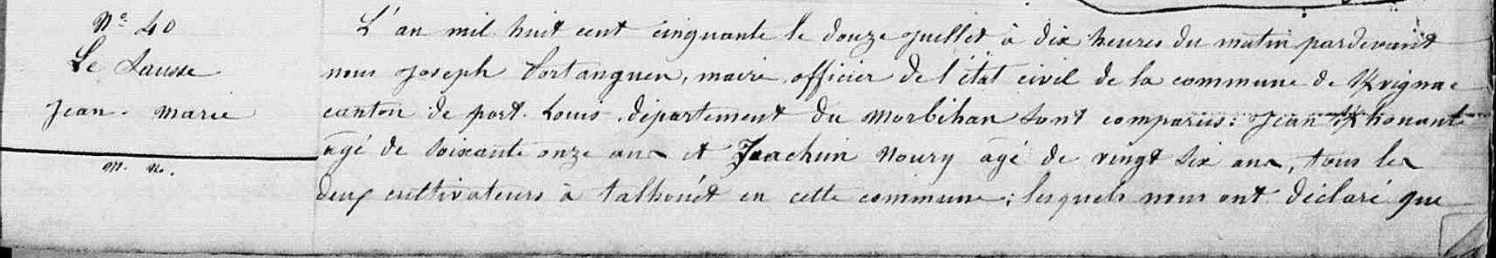 N.° 40
Le Lausse
Jean-Marie
m. n.
L'an mil huit cent cinquante le douze juillet à dix heures du matin pardevant
nous Joseph Tortanguen, maire, officier de l'état civil de la commune de Kvignac
canton de port-Louis, département du Morbihan sont comparus: Jean Khouant
agé de soixante onze ans et Joachim Noury agé de vingt six ans, tous les
deux cultivateurs à talhouët en cette commune; lesquels nous ont déclaré que